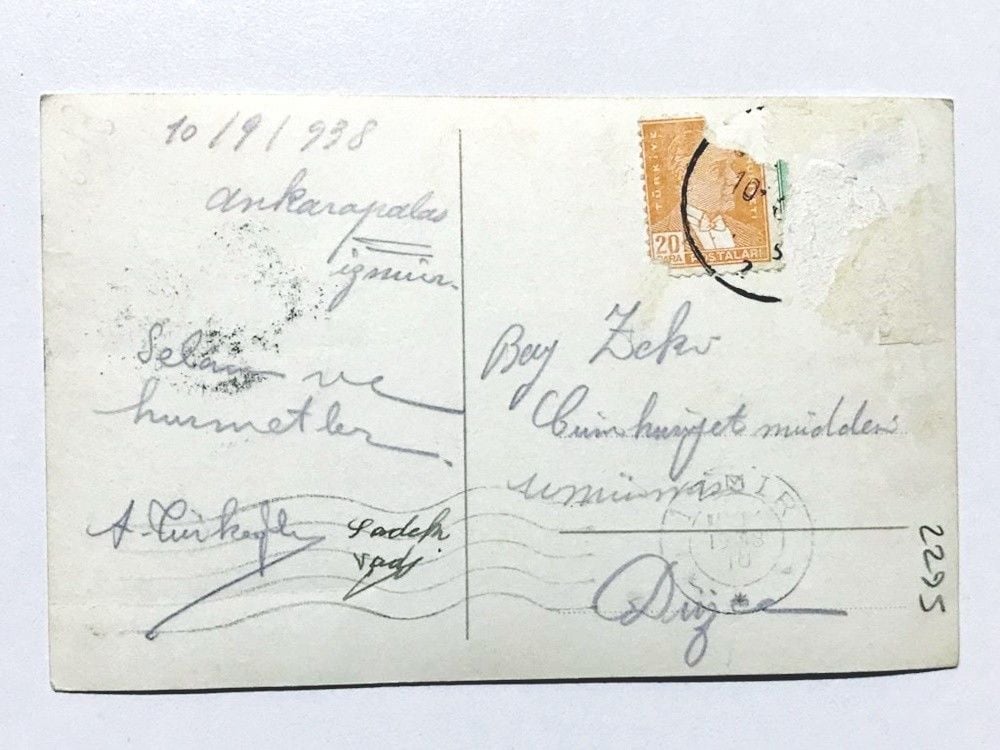 10/9/938
Ankarapalas
izmir.
Selâm ve
hurmetler.
A. Türkoğlu
Sadık
TÜRKİYE
20
PARA
POSTALARI
10
Bay Zeki
Cümhuriyet müddei
umumisi
İZMİR
10
Düzce
2295